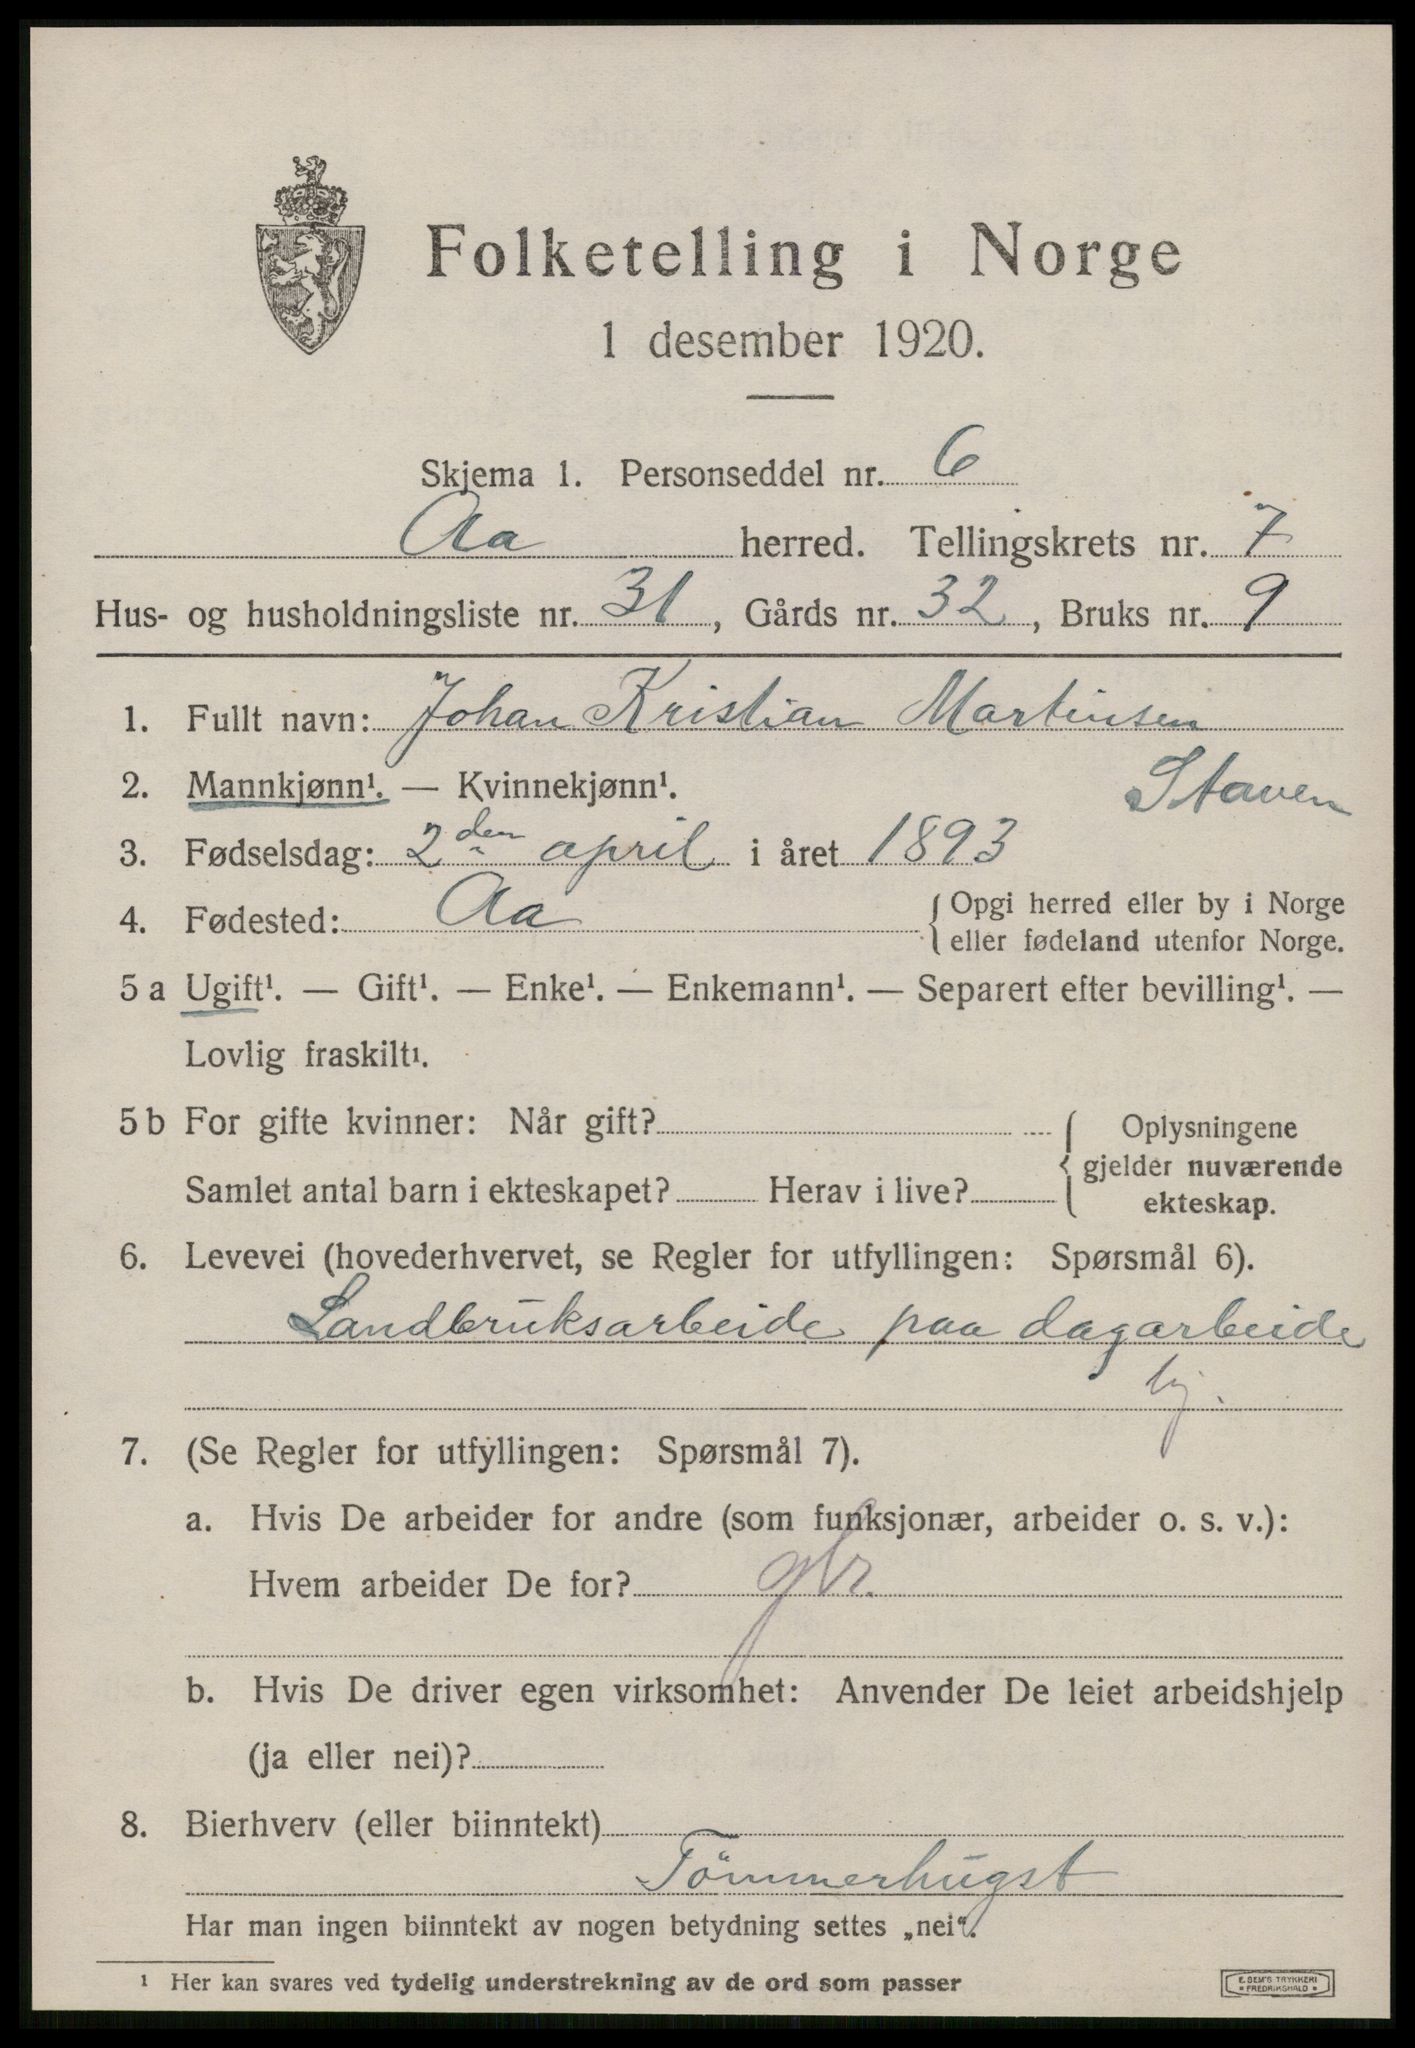 Folketelling i Norge
1 desember 1920.
Skjema 1. Personseddel nr. 6
Aa herred. Tellingskrets nr. 7
Hus- og husholdningsliste nr. 31, Gårds nr. 32, Bruks nr. 9
1. Fullt navn: Johan Kristian Martinsen
Staven
2. Mannkjønn¹. — Kvinnekjønn¹.
3. Fødselsdag: 2den april i året 1893
4. Fødested: Aa {Opgi herred eller by i Norge
eller fødeland utenfor Norge.
5 a Ugift¹. — Gift¹. — Enke¹. — Enkemann¹. — Separert efter bevilling¹. —
Lovlig fraskilt¹.
5 b For gifte kvinner: Når gift?
Samlet antal barn i ekteskapet? Herav i live?
{Oplysningene
gjelder nuværende
ekteskap.
6. Levevei (hovederhvervet, se Regler for utfyllingen: Spørsmål 6).
Landbruksarbeide paa dagarbeide
7. (Se Regler for utfyllingen: Spørsmål 7).
a. Hvis De arbeider for andre (som funksjonær, arbeider o. s. v.):
Hvem arbeider De for? gbr.
b. Hvis De driver egen virksomhet: Anvender De leiet arbeidshjelp
(ja eller nei)?
8. Bierhverv (eller biinntekt)
Tömmerhugst
Har man ingen biinntekt av nogen betydning settes „nei“.
¹ Her kan svares ved tydelig understrekning av de ord som passer
E. SEM'S TRYKKERI
FREDRIKSHALD